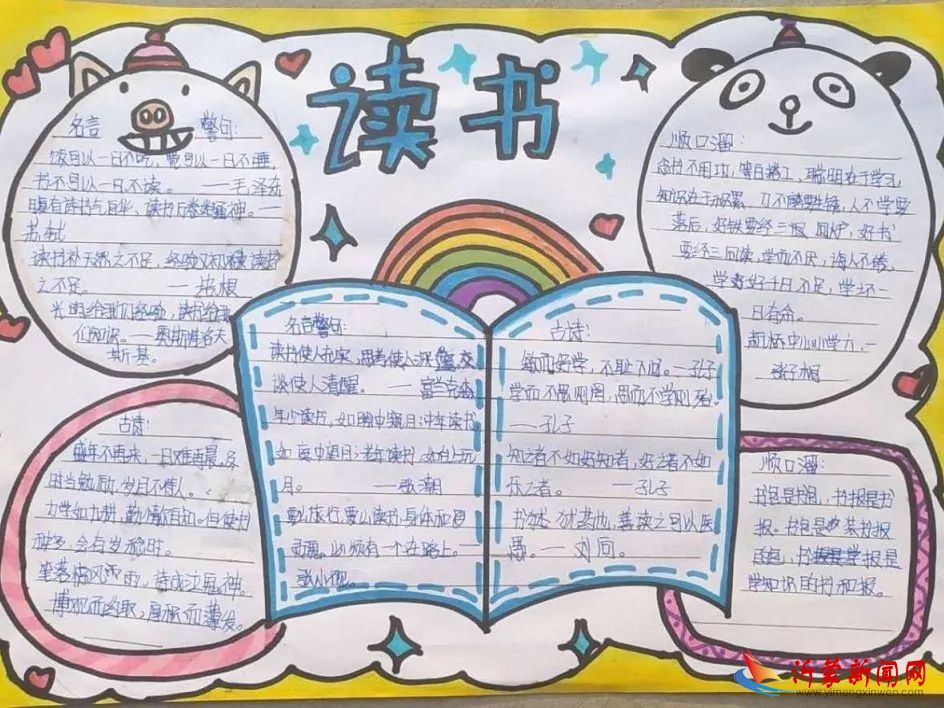 读书
名言 警句:
饭可以一日不吃,觉可以一日不睡,
书不可以一日不读。 ——毛泽东
腹有诗书气自华,读书万卷始通神。—
苏轼
读书补天然之不足,经验又补读书
之不足。 ——培根
光明给我们经验,读书给我
们知识。——奥斯特洛夫
斯基。
顺口溜:
念书不用功,等白搭工,聪明在于学习,
知识在于积累,刀不磨要生锈,人不学要
落后,好铁要经三回炉,好书
要经三回读,学而不厌,诲人不倦,
学好千日不足,学坏一
日有余。
名言警句:
读书使人充实,思考使人深邃,交
谈使人清醒。 ——富兰克林
年少读书,如隙中窥月;中年读书
如庭中望月;老年读书,如台上玩
月。 ——张潮
要么旅行,要么读书,身体和
灵魂,必须有一个在路上。
古诗:
敏而好学,不耻下问。—孔子
学而不思则罔,思而不学则殆。
——孔子
知之者不如好知者,好之者不如
乐之者。 ——孔子
书犹药也,善读之可以医
愚。——刘向。
古诗:
盛年不再来,一日难再晨。及
时当勉励,岁月不待人。
力学如力耕,勤惰尔自知。但使书
种多,会有岁稔时。
笔落惊风雨,诗成泣鬼神。
博观而约取,厚积而薄发。
顺口溜:
书包是书包,书报是书
报。书包是要装书报
的包,书报是学报是
学知识的书和报。
沂蒙新闻网
www.yimengxinwen.com